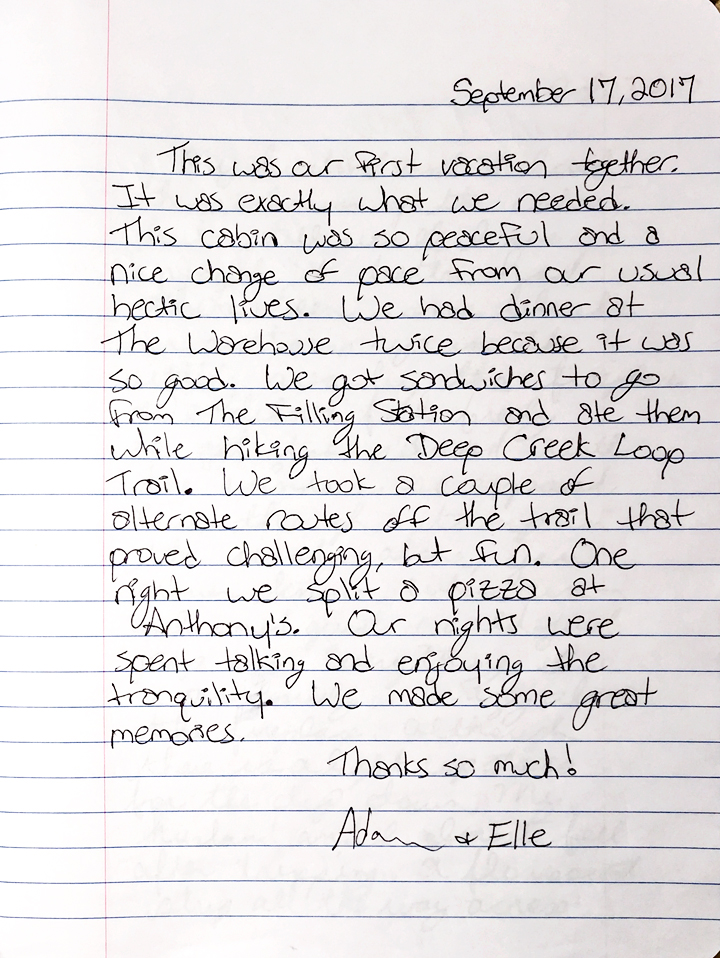 September 17, 2017
This was our first vacation together.
It was exactly what we needed.
This cabin was so peaceful and a
nice change of pace from our usual
hectic lives. We had dinner at
The Warehouse twice because it was
so good. We got sandwiches to go
from The Filling Station and ate them
while hiking the Deep Creek Loop
Trail. We took a couple of
alternate routes off the trail that
proved challenging, but fun. One
night we split a pizza at
Anthony's. Our nights were
spent talking and enjoying the
tranquility. We made some great
memories.
Thanks so much!
Adam & Elle